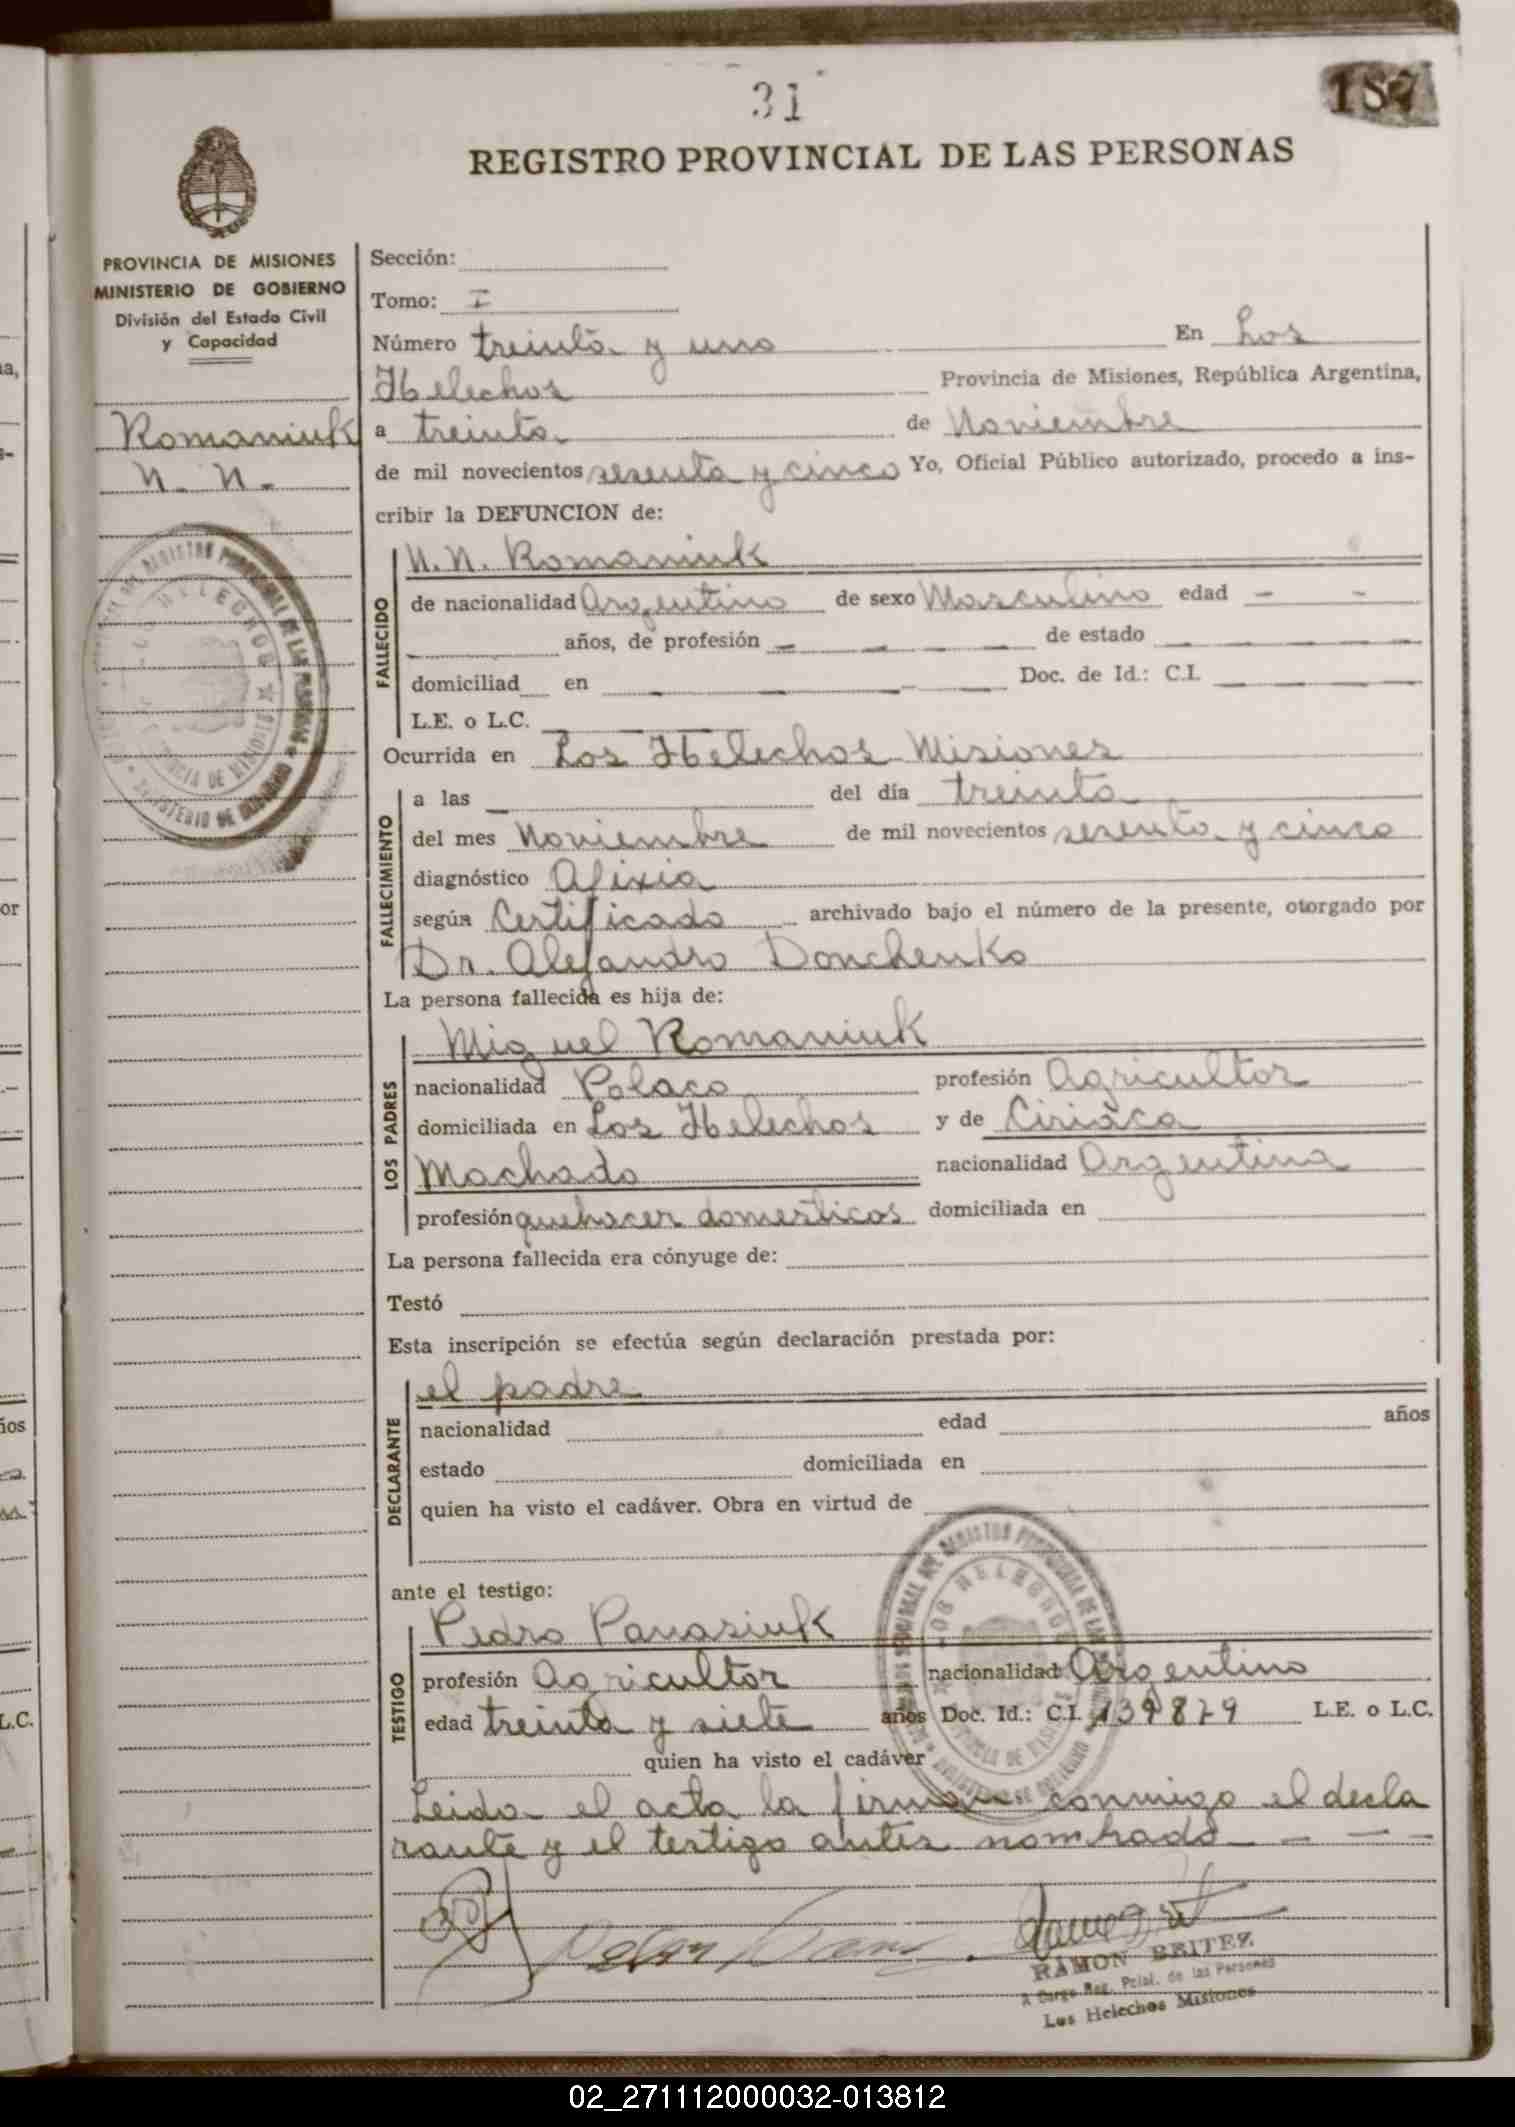 31
187
REGISTRO PROVINCIAL DE LAS PERSONAS
PROVINCIA DE MISIONES
MINISTERIO DE GOBIERNO
División del Estado Civil
y Capacidad
Romaniuk
N. N.
Sección:
Tomo: I
Número treinta y uno En Los
Helechos Provincia de Misiones, República Argentina,
a treinta de Noviembre
de mil novecientos sesenta y cinco Yo, Oficial Público autorizado, procedo a ins-
cribir la DEFUNCION de:
FALLECIDO
N.N. Romaniuk
de nacionalidad Argentino de sexo Masculino edad - -
años, de profesión de estado
domiciliad en Doc. de Id.: C.I.
L.E. o L.C.
Ocurrida en Los Helechos Misiones
FALLECIMIENTO
a las del día treinta
del mes Noviembre de mil novecientos sesenta y cinco
diagnóstico Afixia
según Certificado archivado bajo el número de la presente, otorgado por
Dr. Alejandro Donchenko
La persona fallecida es hija de:
LOS PADRES
Miguel Romaniuk
nacionalidad Polaco profesión Agricultor
domiciliada en Los Helechos y de Ciriaca
Machado nacionalidad Argentina
profesión quehacer domesticos domiciliada en
La persona fallecida era cónyuge de:
Testó
Esta inscripción se efectúa según declaración prestada por:
DECLARANTE
el padre
nacionalidad edad años
estado domiciliada en
quien ha visto el cadáver. Obra en virtud de
ante el testigo:
TESTIGO
Pedro Panasiuk
profesión Agricultor nacionalidad Argentino
edad treinta y siete años Doc. Id.: C.I. 139879 L.E. o L.C.
quien ha visto el cadáver
Leida el acta la firman conmigo el decla
rante y el testigo antes nombrado - - -
RAMON BRITEZ
A Cargo Reg. Pcial. de las Personas
Los Helechos Misiones
02_271112000032-013812